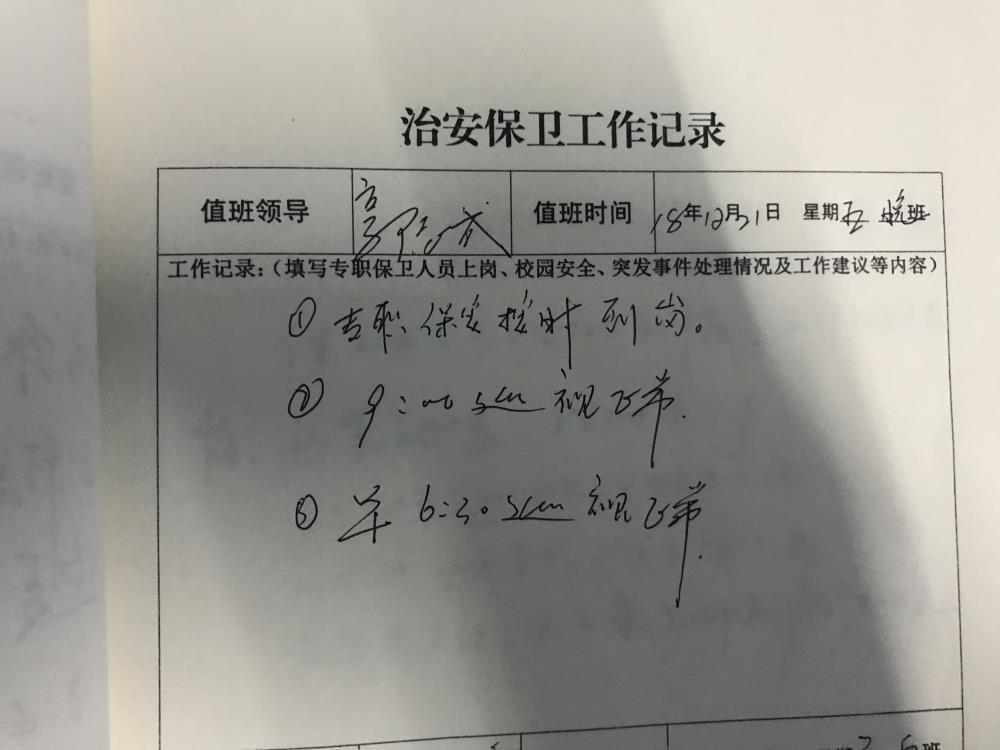 治安保卫工作记录
值班领导 高 成 值班时间 18年12月31日 星期五 晚班
工作记录：（填写专职保卫人员上岗、校园安全、突发事件处理情况及工作建议等内容）
① 专职保安按时到岗。
② 9:00 巡视正常.
③ 早 6:30 巡视正常.
班